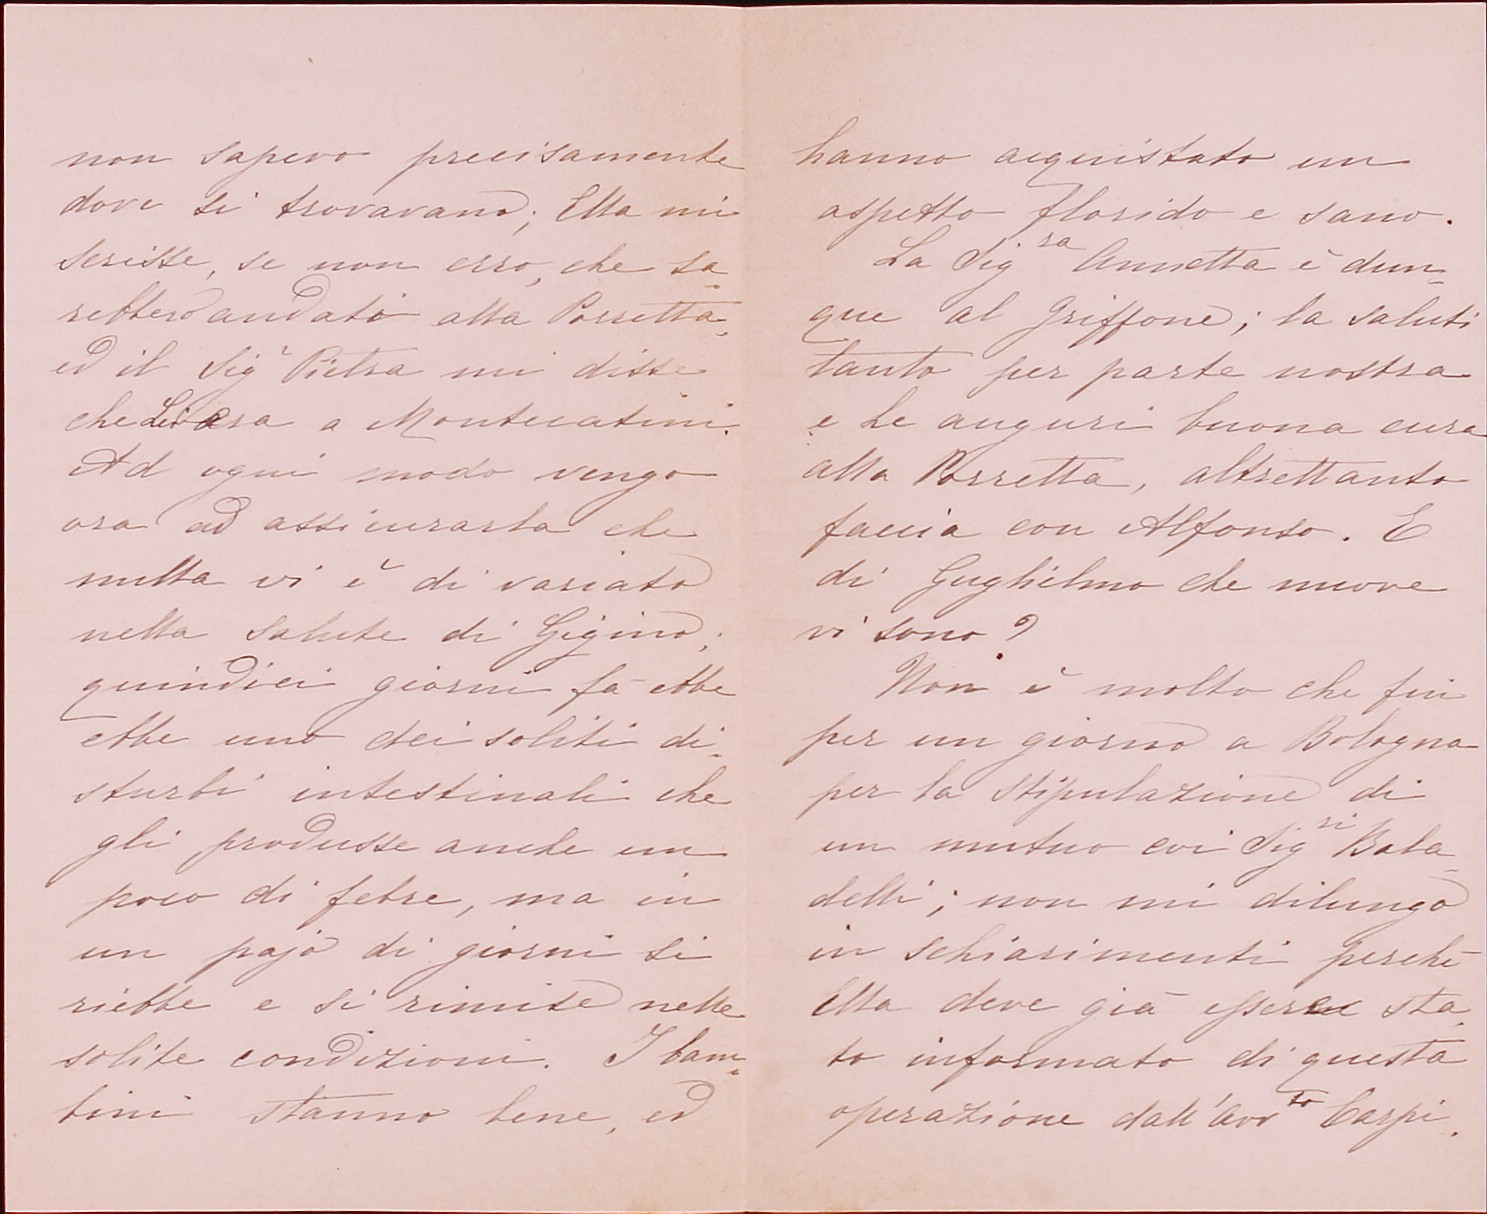 non sapevo precisamente
dove si trovavano; Ella mi
scrisse, se non erro, che sa-
rebbero andati alla Porretta,
ed il Sigr Pietra mi disse
che Lei era a Montecatini.
Ad ogni modo vengo
ora ad assicurarla che
nulla vi è di variato
nella salute di Gigino;
quindici giorni fa ebbe
ebbe uno dei soliti di-
sturbi intestinali che
gli produsse anche un
poco di febre, ma in
un pajo di giorni si
riebbe e si rimise nelle
solite condizioni. I bam-
bini stanno bene, ed
hanno acquistato un
aspetto florido e sano.
La Sigra Annetta è dun-
que al Griffone; la saluti
tanto per parte nostra
e le auguri buona cura
alla Porretta, altrettanto
faccia con Alfonso. E
di Guglielmo che nuove
vi sono?
Non è molto che fui
per un giorno a Bologna
per la stipulazione di
un mutuo coi Sigri Baba-
delli; non mi dilungo
in schiarimenti perchè
Ella deve già essere sta-
to informato di questa
operazione dall'Avvto Carpi.